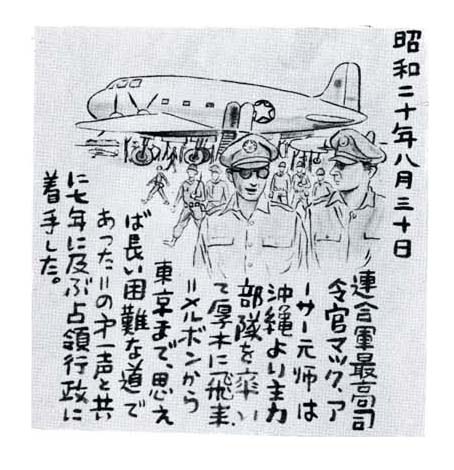 昭和二十年八月三十日
連合軍最高司
令官マック、ア
ーサー元帅は
沖縄より主力
部隊を率い
て厚木に飛来、
＝メルボンから
東京まで、思え
ば長い困難な道で
あった＝の才一声と共
に七年に及ぶ占領行政に
着手した。